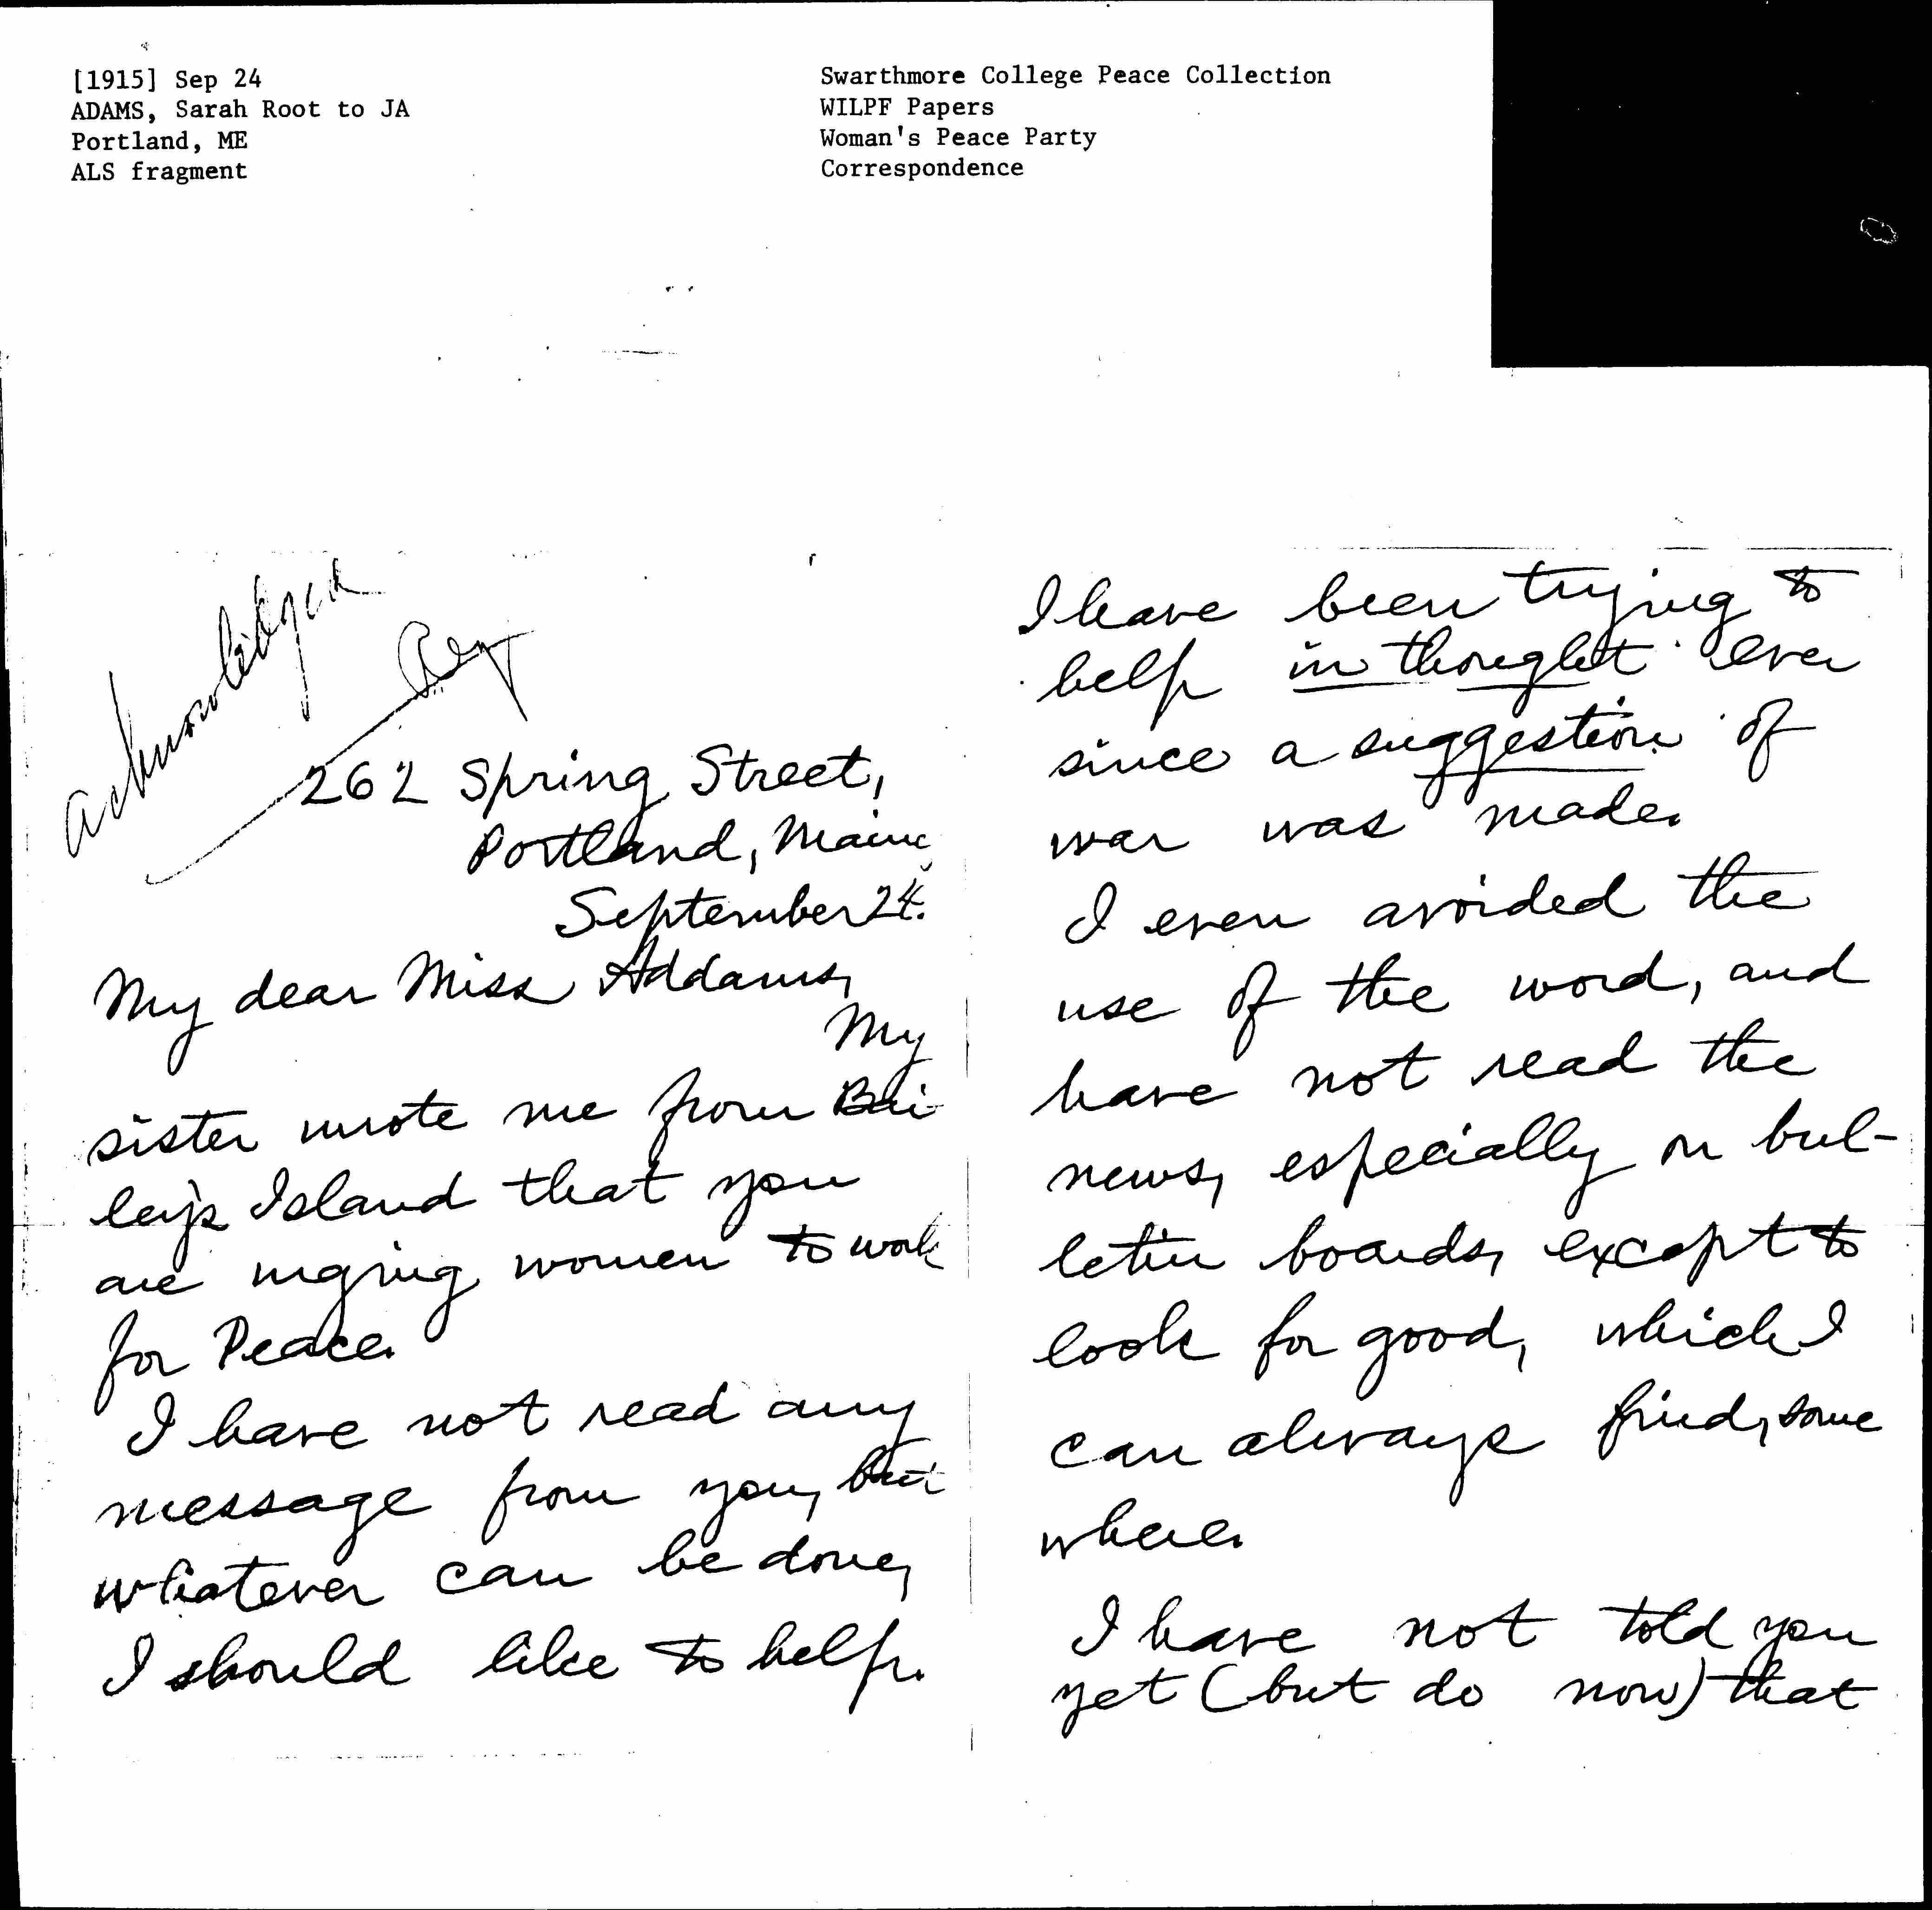 [1915] Sep 24
ADAMS, Sarah Root to JA
Portland, ME
ALS fragment
Swarthmore College Peace Collection
WILPF Papers
Woman's Peace Party
Correspondence
acknowledged
262 Spring Street,
Portland, Maine
September 24.
My dear Miss Addams,
My
sister wrote me from Bai-
ley's Island that you
are urging women to work
for Peace.
I have not read any
message from you, but
whatever can be done,
I should like to help.
I have been trying to
help in thought ever
since a suggestion of
war was made.
I even avoided the
use of the word, and
have not read the
news, especially on bul-
letin boards, except to
look for good, which I
can always find, some
where.
I have not told you
yet (but do now) that